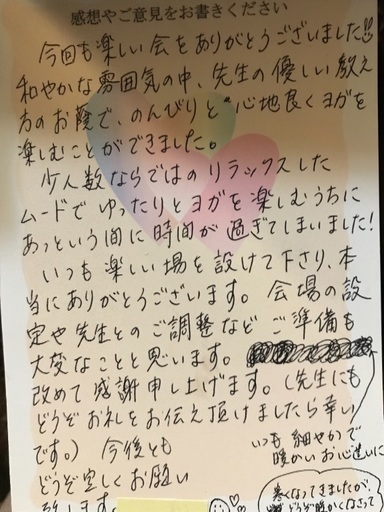 感想やご意見をお書きください
今回も楽しい会をありがとうございました!!
和やかな雰囲気の中、先生の優しい教え
方のお蔭で、のんびりと心地良くヨガを
楽しむことができました。
少人数ならではのリラックスした
ムードでゆったりとヨガを楽しむうちに
あっという間に時間が過ぎてしまいました!
いつも楽しい場を設けて下さり、本
当にありがとうございます。会場の設
定や先生とのご調整などご準備も
大変なことと思います。
改めて感謝申し上げます。(先生にも
どうぞお礼をお伝え頂けましたら幸い
です。) 今後とも
どうぞ宜しくお願い
致します。
いつも細やかで
暖かいお心遣いに
寒くなってきましたが、
どうぞ暖かくなさって